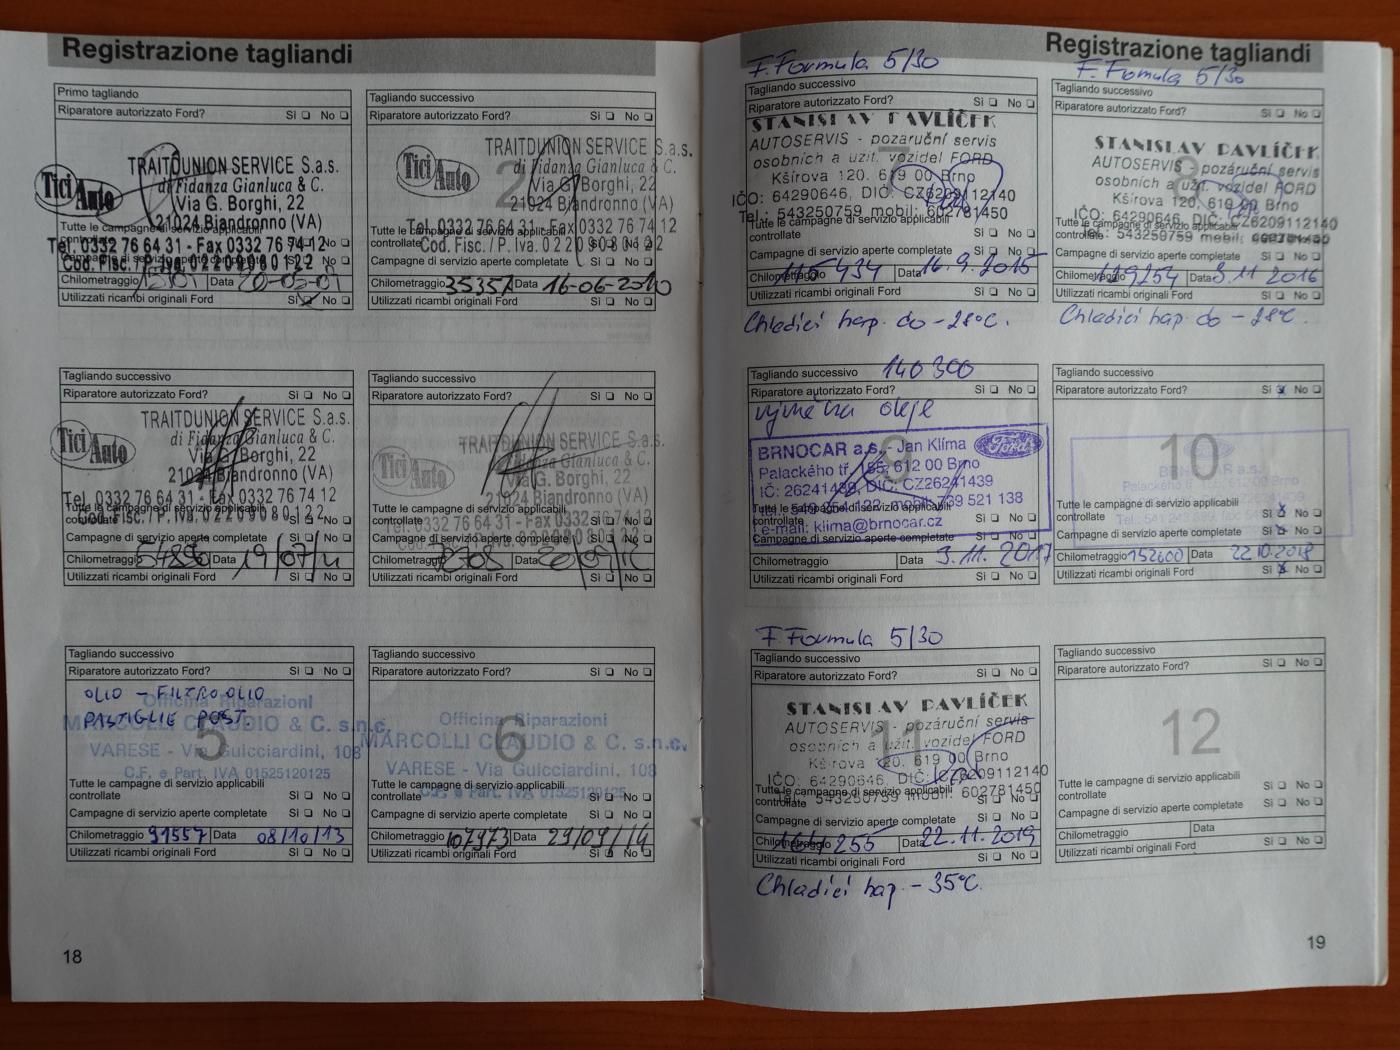 Registrazione tagliandi
Primo tagliando
Riparatore autorizzato Ford? Sì No
Tici Auto
TRAITDUNION SERVICE S.a.s.
di Fidanza Gianluca & C.
Via G. Borghi, 22
21024 Biandronno (VA)
Tutte le campagne di servizio applicabili
Tel. 0332 76 64 31 - Fax 0332 76 74 12
Cod. Fisc. / P. Iva. 02209080122
Chilometraggio Data 20-05-09
Utilizzati ricambi originali Ford Sì No
Tagliando successivo
Riparatore autorizzato Ford? Sì No
2
Tici Auto
TRAITDUNION SERVICE S.a.s.
di Fidanza Gianluca & C.
Via G. Borghi, 22
21024 Biandronno (VA)
Tel. 0332 76 64 31 - Fax 0332 76 74 12
Tutte le campagne di servizio applicabili
controllate Sì No
Cod. Fisc. / P. Iva. 02209080122
Campagne di servizio aperte completate Sì No
Chilometraggio 35357 Data 16-06-2010
Utilizzati ricambi originali Ford Sì No
Tagliando successivo
Riparatore autorizzato Ford? Sì No
Tici Auto
TRAITDUNION SERVICE S.a.s.
di Fidanza Gianluca & C.
Via G. Borghi, 22
21024 Biandronno (VA)
Tel. 0332 76 64 31 - Fax 0332 76 74 12
Tutte le campagne di servizio applicabili
controllate Sì No
Cod. Fisc. / P. Iva. 02209080122
Campagne di servizio aperte completate Sì No
Chilometraggio 54896 Data 19/07/11
Utilizzati ricambi originali Ford Sì No
Tagliando successivo
Riparatore autorizzato Ford? Sì No
Tici Auto
TRAITDUNION SERVICE S.a.s.
di Fidanza Gianluca & C.
Via G. Borghi, 22
21024 Biandronno (VA)
Tutte le campagne di servizio applicabili
controllate Sì No
Tel. 0332 76 64 31 - Fax 0332 76 74 12
Campagne di servizio aperte completate Sì No
Chilometraggio 72708 Data 20/09/12
Utilizzati ricambi originali Ford Sì No
Tagliando successivo
Riparatore autorizzato Ford? Sì No
OLIO - FILTRO OLIO
PASTIGLIE POST.
5
Officina Riparazioni
MARCOLLI CLAUDIO & C. s.n.c.
VARESE - Via Guicciardini, 108
C.F. e Part. IVA 01525120125
Tutte le campagne di servizio applicabili
controllate Sì No
Campagne di servizio aperte completate Sì No
Chilometraggio 91557 Data 08/10/13
Utilizzati ricambi originali Ford Sì No
Tagliando successivo
Riparatore autorizzato Ford? Sì No
6
Officina Riparazioni
MARCOLLI CLAUDIO & C. s.n.c.
VARESE - Via Guicciardini, 108
C.F. e Part. IVA 01525120125
Tutte le campagne di servizio applicabili
controllate Sì No
Campagne di servizio aperte completate Sì No
Chilometraggio 107973 Data 29/09/14
Utilizzati ricambi originali Ford Sì No
18
Registrazione tagliandi
F. Formula 5/30
Tagliando successivo
Riparatore autorizzato Ford? Sì No
STANISLAV PAVLÍČEK
AUTOSERVIS - pozáruční servis
osobních a užit. vozidel FORD
Kšírova 120, 619 00 Brno
IČO: 64290646, DIČ: CZ6209112140
Tel.: 543250759 mobil: 602781450
Tutte le campagne di servizio applicabili
controllate Sì No
Campagne di servizio aperte completate Sì No
Chilometraggio 116 434 Data 16.9.2015
Utilizzati ricambi originali Ford Sì No
Chladící kap. do -28°C.
F. Formula 5/30
Tagliando successivo
Riparatore autorizzato Ford? Sì No
8
STANISLAV PAVLÍČEK
AUTOSERVIS - pozáruční servis
osobních a užit. vozidel FORD
Kšírova 120, 619 00 Brno
IČO: 64290646, DIČ: CZ6209112140
Tel.: 543250759 mobil: 602781450
Tutte le campagne di servizio applicabili
controllate Sì No
Campagne di servizio aperte completate Sì No
Chilometraggio 129254 Data 3.11 2016
Utilizzati ricambi originali Ford Sì No
Chladící kap. do -28°C.
Tagliando successivo 140 300
Riparatore autorizzato Ford? Sì No
výměna oleje
9
BRNOCAR a.s. - Jan Klíma Ford
Palackého tř. 155, 612 00 Brno
IČ: 26241439, DIČ: CZ26241439
mobil: 739 521 138
Tutte le campagne di servizio applicabili
controllate Sì No
e-mail: klima@brnocar.cz
Campagne di servizio aperte completate Sì No
Chilometraggio Data 3.11.2017
Utilizzati ricambi originali Ford Sì No
Tagliando successivo
Riparatore autorizzato Ford? Sì x No
10
BRNOCAR a.s.
Tutte le campagne di servizio applicabili
controllate Sì x No
Campagne di servizio aperte completate Sì x No
Chilometraggio 152600 Data 22.10.2018
Utilizzati ricambi originali Ford Sì x No
F. Formula 5/30
Tagliando successivo
Riparatore autorizzato Ford? Sì No
11
STANISLAV PAVLÍČEK
AUTOSERVIS - pozáruční servis
osobních a užit. vozidel FORD
Kšírova 120, 619 00 Brno
IČO: 64290646, DIČ: CZ6209112140
Tel.: 543250759 mobil: 602781450
Tutte le campagne di servizio applicabili
controllate Sì No
Campagne di servizio aperte completate Sì No
Chilometraggio 164 255 Data 22.11.2019
Utilizzati ricambi originali Ford Sì No
Chladící kap -35°C.
Tagliando successivo
Riparatore autorizzato Ford? Sì No
12
Tutte le campagne di servizio applicabili
controllate Sì No
Campagne di servizio aperte completate Sì No
Chilometraggio Data
Utilizzati ricambi originali Ford Sì No
19